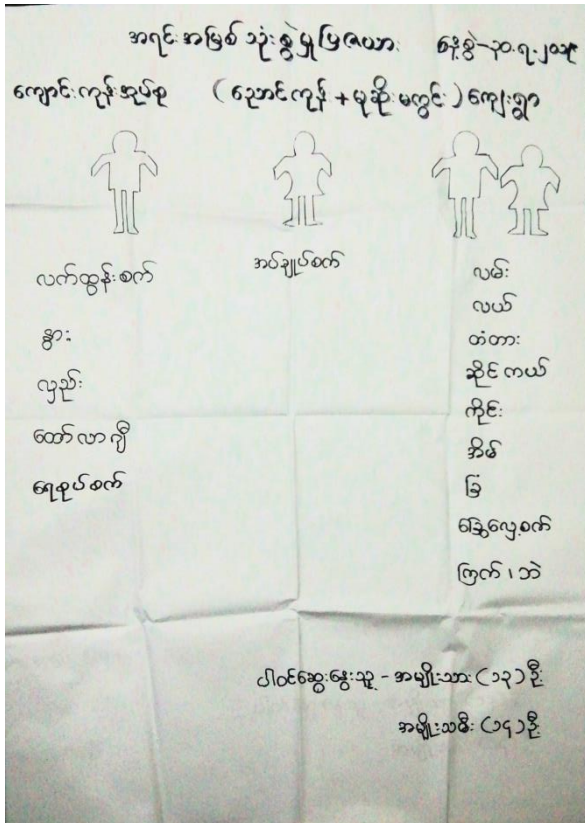 အရင်းအမြစ် သုံးစွဲမှုပြဇယား နေ့စွဲ-၃၀.၇.၂၀၁၉
ကျောင်းကုန်းအုပ်စု (ညောင်ကုန်း + မုဆိုးမကွင်း) ကျေးရွာ
လက်ထွန်းစက်
နွား
လှည်း
ထော်လာဂျီ
ရေစုပ်စက်
အပ်ချုပ်စက်
လမ်း
လယ်
တံတား
ဆိုင်ကယ်
ကိုင်း
အိမ်
ခြံ
ခြွေလှေ့စက်
ကြက်၊ ဘဲ
ပါဝင်ဆွေးနွေးသူ - အမျိုးသား (၁၃) ဦး
အမျိုးသမီး (၁၄) ဦး